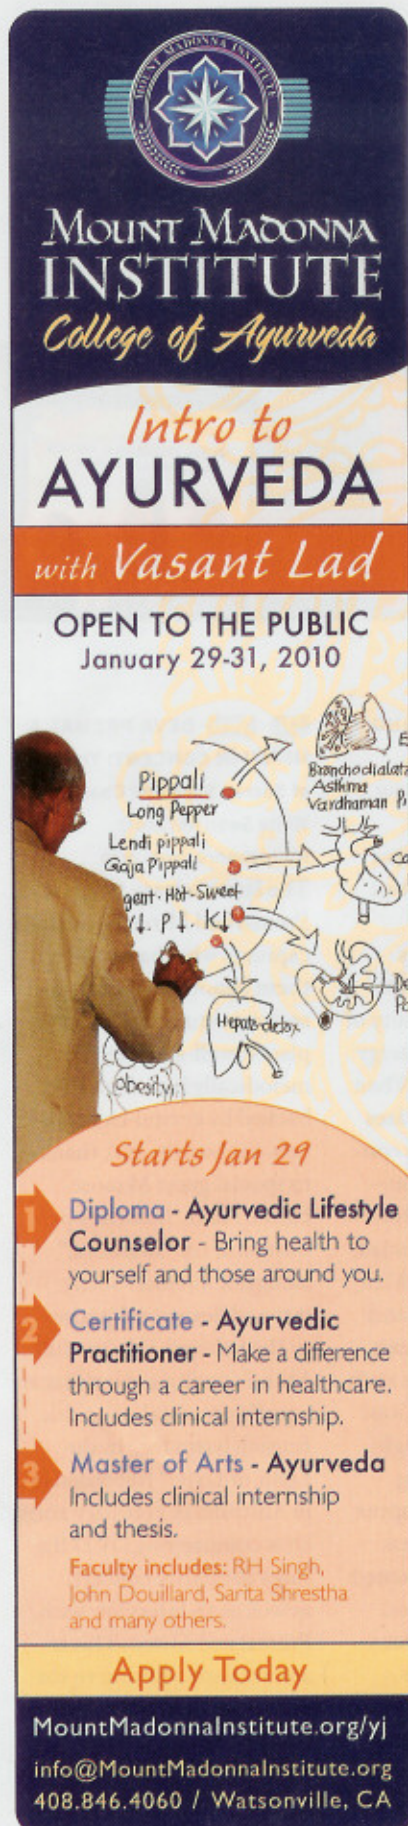 MOUNT MADONNA INSTITUTE
MOUNT MADONNA
INSTITUTE
College of Ayurveda
Intro to
AYURVEDA
with Vasant Lad
OPEN TO THE PUBLIC
January 29-31, 2010
Pippali
Long Pepper
Lendi pippali
Gaja Pippali
gent. Hot-Sweet
V↓. P↓. K↓
Bronchodialata
Asthma
Vardhaman
Hepato-detox
obesity
Starts Jan 29
1
Diploma - Ayurvedic Lifestyle
Counselor - Bring health to
yourself and those around you.
2
Certificate - Ayurvedic
Practitioner - Make a difference
through a career in healthcare.
Includes clinical internship.
3
Master of Arts - Ayurveda
Includes clinical internship
and thesis.
Faculty includes: RH Singh,
John Douillard, Sarita Shrestha
and many others.
Apply Today
MountMadonnaInstitute.org/yj
info@MountMadonnaInstitute.org
408.846.4060 / Watsonville, CA